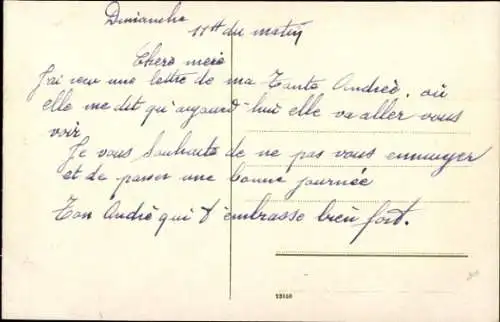 Dimanche
11H du matin
Chère mère
J'ai reçu une lettre de ma Tante Andreè. où
elle me dit qu'aujourd'hui elle va aller vous
voir
Je vous souhaite de ne pas vous ennuyer
et de passer une bonne journée
Ton Andrè qui t'embrasse bien fort.